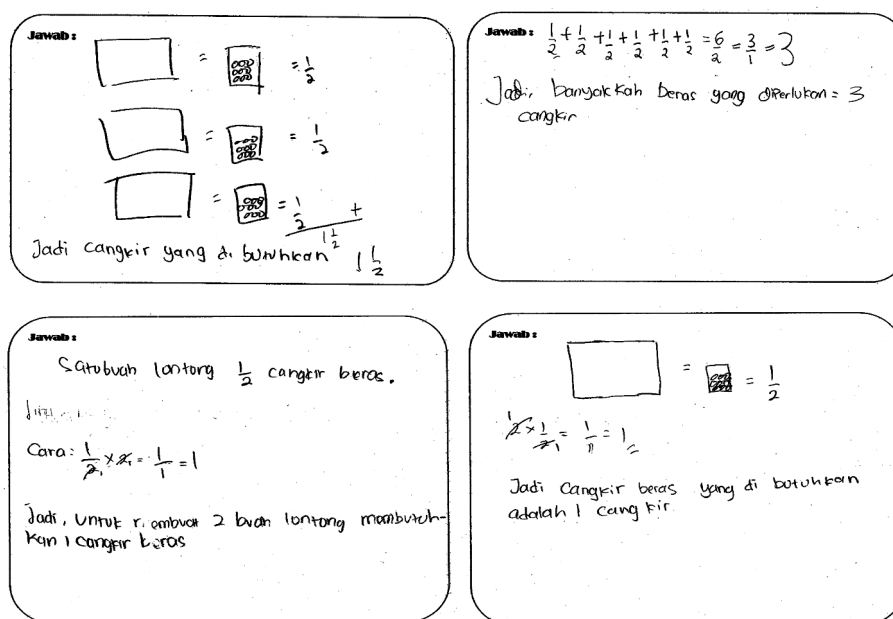 Jawab:
= = 1/2
= = 1/2
= = 1/2 +
1 1/2
Jadi cangkir yang di butuhkan 1 1/2
Jawab:
1/2 + 1/2 + 1/2 + 1/2 + 1/2 + 1/2 = 6/2 = 3/1 = 3
Jadi, banyakkah beras yang diperlukan = 3
cangkir
Jawab:
Satubuah lontong 1/2 cangkir beras.
Cara: 1/2 x 2 = 1/1 = 1
Jadi, untuk membuat 2 buah lontong membutuh-
kan 1 cangkir beras
Jawab:
= = 1/2
2 x 1/2 = 1/1 = 1
Jadi cangkir beras yang di butuhkan
adalah 1 cangkir